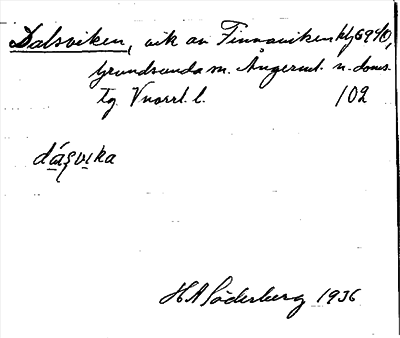 Dalsviken, vik av Finnaviken
Grundsunda sn. Ångerml. n. doms.
tg. Vnorrl. l. 102
dásvika
H A Söderberg 1936